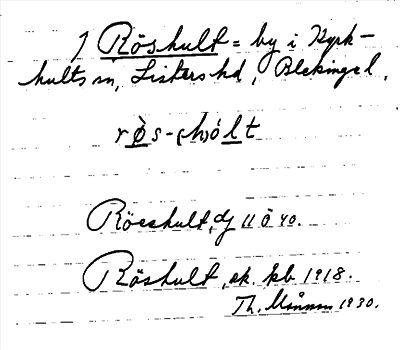 1 Röshult = by i Kyrk-
hults sn, Listers hd, Blekinge l.
rø̀s-(h)ól̲t
Röeshult, dj 11 ö 40.
Röshult, ek. kb. 1918.
Th. Månsson 1930.